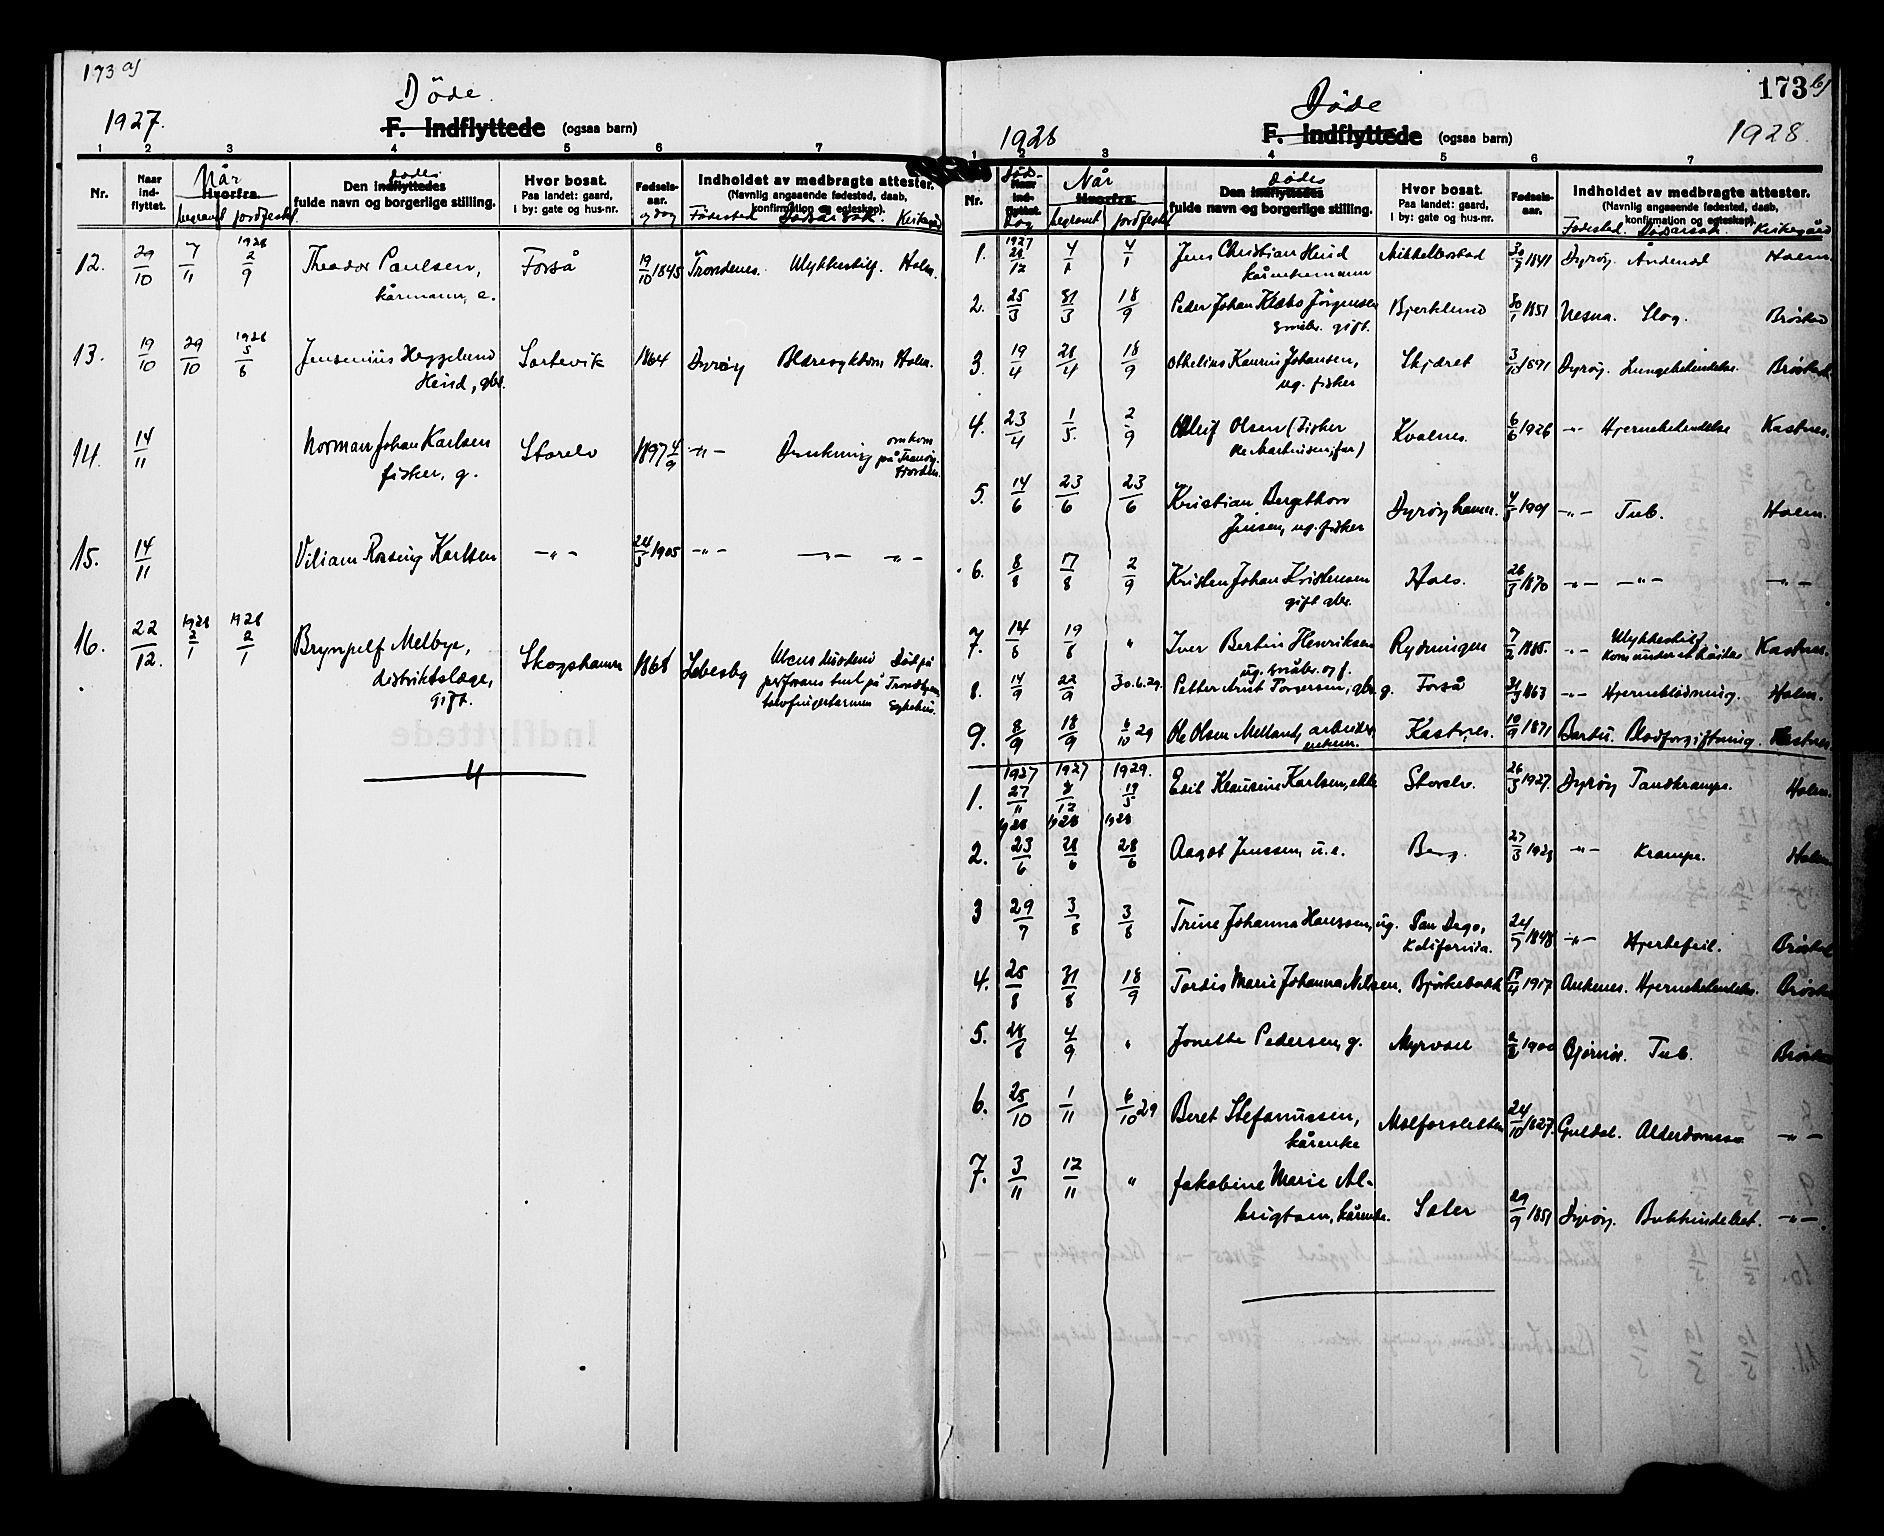 173 a)
Döde.
1927.
F. Indflyttede (ogsaa barn)
1 2 3 4 5 6 7
Nr.
Naar ind- flyttet.
Når
Hvorfra.
begravet jordfestet
Den indflyttedes
dødes
fulde navn og borgerlige stilling.
Hvor bosat.
Paa landet: gaard,
I by: gate og hus-nr.
Fødsels- aar.
og dag
Indholdet av medbragte attester.
(Navnlig angaaende fødested, daab,
konfirmation og egteskap).
Fødested Dødsårsak. Kirkegård
12. 29/10 7/11 1928 2/9 Theodor Paulsen, Forså 19/10 1845 Trondenes. Ulykkestilf. Holm.
kårmann, e.
13. 19/10 29/10 1928 5/6 Jensenius Heggelund Sortevik 1864 Dyrøy Blæresykdom Holm.
Heid, gbr.
14. 14/11 Norman Johan Karlsen Storelv 1897 4/9 -"- Drukning omkom på Tranøy- fjorden.
fisker, g.
15. 14/11 Viliam Rasing Karlsen -"- 24/5 1905 -"- -"- -"-
16. 22/12. 1928 2/1 1928 2/1 Brynjulf Melbye, Skogshamn 1868 Lebesby Ulcus duodeni Død på
distriktslæge, perforans tent på Trondhjem
gift. tolvfingertarmen Sykehus.
4
173 b)
Døde
1928
F. Indflyttede (ogsaa barn)
1928.
1 2 3 4 5 6 7
Nr.
Døds-
Naar ind- flyttet.
dag
Når
Hvorfra.
begravet jordfestet
Den indflyttedes
dødes
fulde navn og borgerlige stilling.
Hvor bosat.
Paa landet: gaard,
I by: gate og hus-nr.
Fødsels- aar.
Indholdet av medbragte attester.
(Navnlig angaaende fødested, daab,
konfirmation og egteskap).
Fødested. Dødsårsak. Kirkegård
1. 1927 28/12 4/1 4/1 Jens Christian Heid Mikkelbostad 30/7 1841 Dyrøy. Åndenød Holm.
kårenkemann
2. 25/3 31/3 18/9 Peder Johan Klæbo Jörgensen Bjerklund 30/1 1851 Nesna. Slag. Brøstad
småbr. gift.
3. 19/4 28/4 18/9 Othelius Kaurin Johansen, Skjæret 3/10 1891 Dyrøy. Lungebetendelse. Brøstad
ug. fisker
4. 23/4 1/5. 2/9 Olsen (Fisker Kvalnes. 6/6 1926 -"- Hjernebetendelse Kastnes.
5. 14/6 23/6 23/6 Kristian Bergethon Dyrøyhamn. 4/3 1901 -"- Tub. Holm.
Jensen, ug. fisker
6. 8/8 17/8 2/9 Kristen Johan Kristensen Hals. 26/3 1870 -"- -"- -"-
gift gbr.
7. 14/8 19/8 " Iver Bertin Henriksen Rydningen 7/2 1885. -"- Ulykkestilf. Kastnes.
ug. småbr. og f. Kom under et båtlår
8. 14/9 22/9 30.6.29. Petter Arnt Torgersen, gbr. g. Forså 31/3 1863 -"- Hjerneblødning. Holm.
9. 8/9 18/9 6/10 29 Ole Olsen Melland, arbeider Kastnes. 10/9 1871 Bardu. Blodforgiftning. Kastnes.
enkem.
1. 1927 27/11 1927 8/12 1929. 19/5 Edil Klausine Karlsen, ekte Storelv. 26/3 1927. Dyrøy Tandkrampe. Holm.
1928 1928 1928
2. 23/6 28/6 28/6 Aagot Jenssen, u.e. Berg. 27/3 1928 -"- Krampe. Holm
3 29/7 3/8 3/8 Trine Johanna Hanssen, ug. San Dego, 24/7 1848 -"- Hjertefeil. Brøstad
Kalifornia.
4. 25/8 31/8 18/9 Tordis Marie Johanna Nilsen, Bjørkebakk 17/4 1917 Ankenes. Hjernebetendelse. Brøstad
5. 28/8 4/9 " Jonette Pedersen, g. Myrvoll 2/8 1900 Bjørnør. Tub. Brøstad
6. 25/10 1/11 6/10 29 Beret Stefanussen, Molforsletten 24/10 1827. Guldal. Alderdomss. -"-
kårenke
7. 3/11 12/11 " Jakobine Marie Al-
brigtsen, kårenke. Soler 29/9 1851 Dyrøy. -"-.